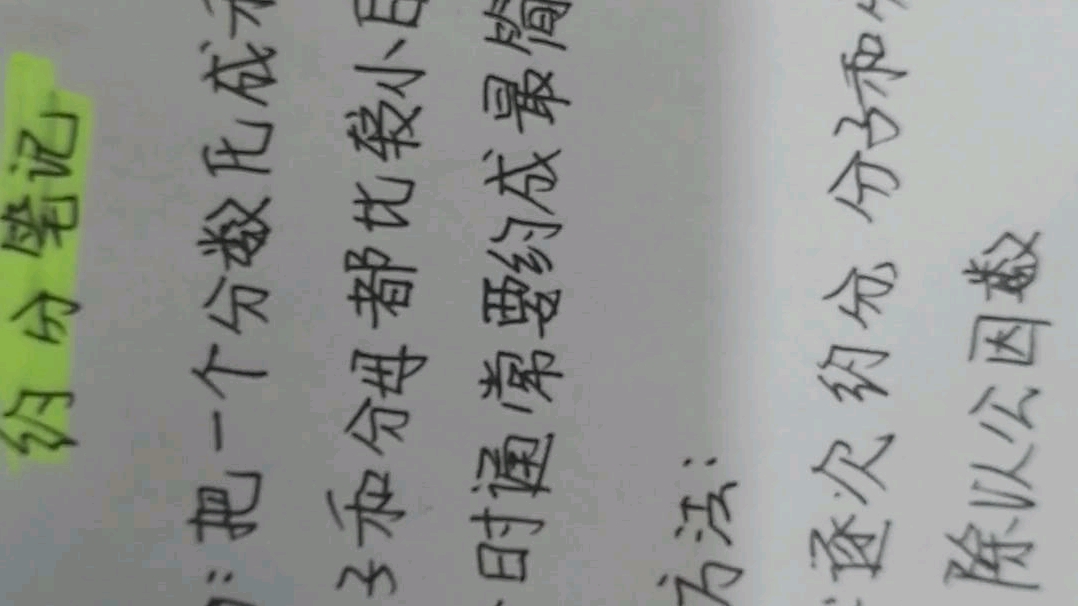 约分笔记
：把一个分数化成和
子和分母都比较小
时通常要约成最简
方法：
逐次约分 分子和
除以公因数